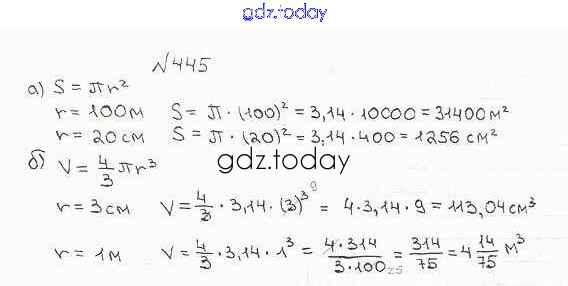 gdz.today
№445
а) S = πr²
r = 100 м S = π · (100)² = 3,14 · 10000 = 31400 м²
r = 20 см S = π · (20)² = 3,14 · 400 = 1256 см²
б) V = 4/3 πr³
gdz.today
r = 3 см V = 4/3 · 3,14 · (3)³ 9 = 4 · 3,14 · 9 = 113,04 см³
r = 1 м V = 4/3 · 3,14 · 1³ = 4·314/3·100 25 = 314/75 = 4 14/75 м³